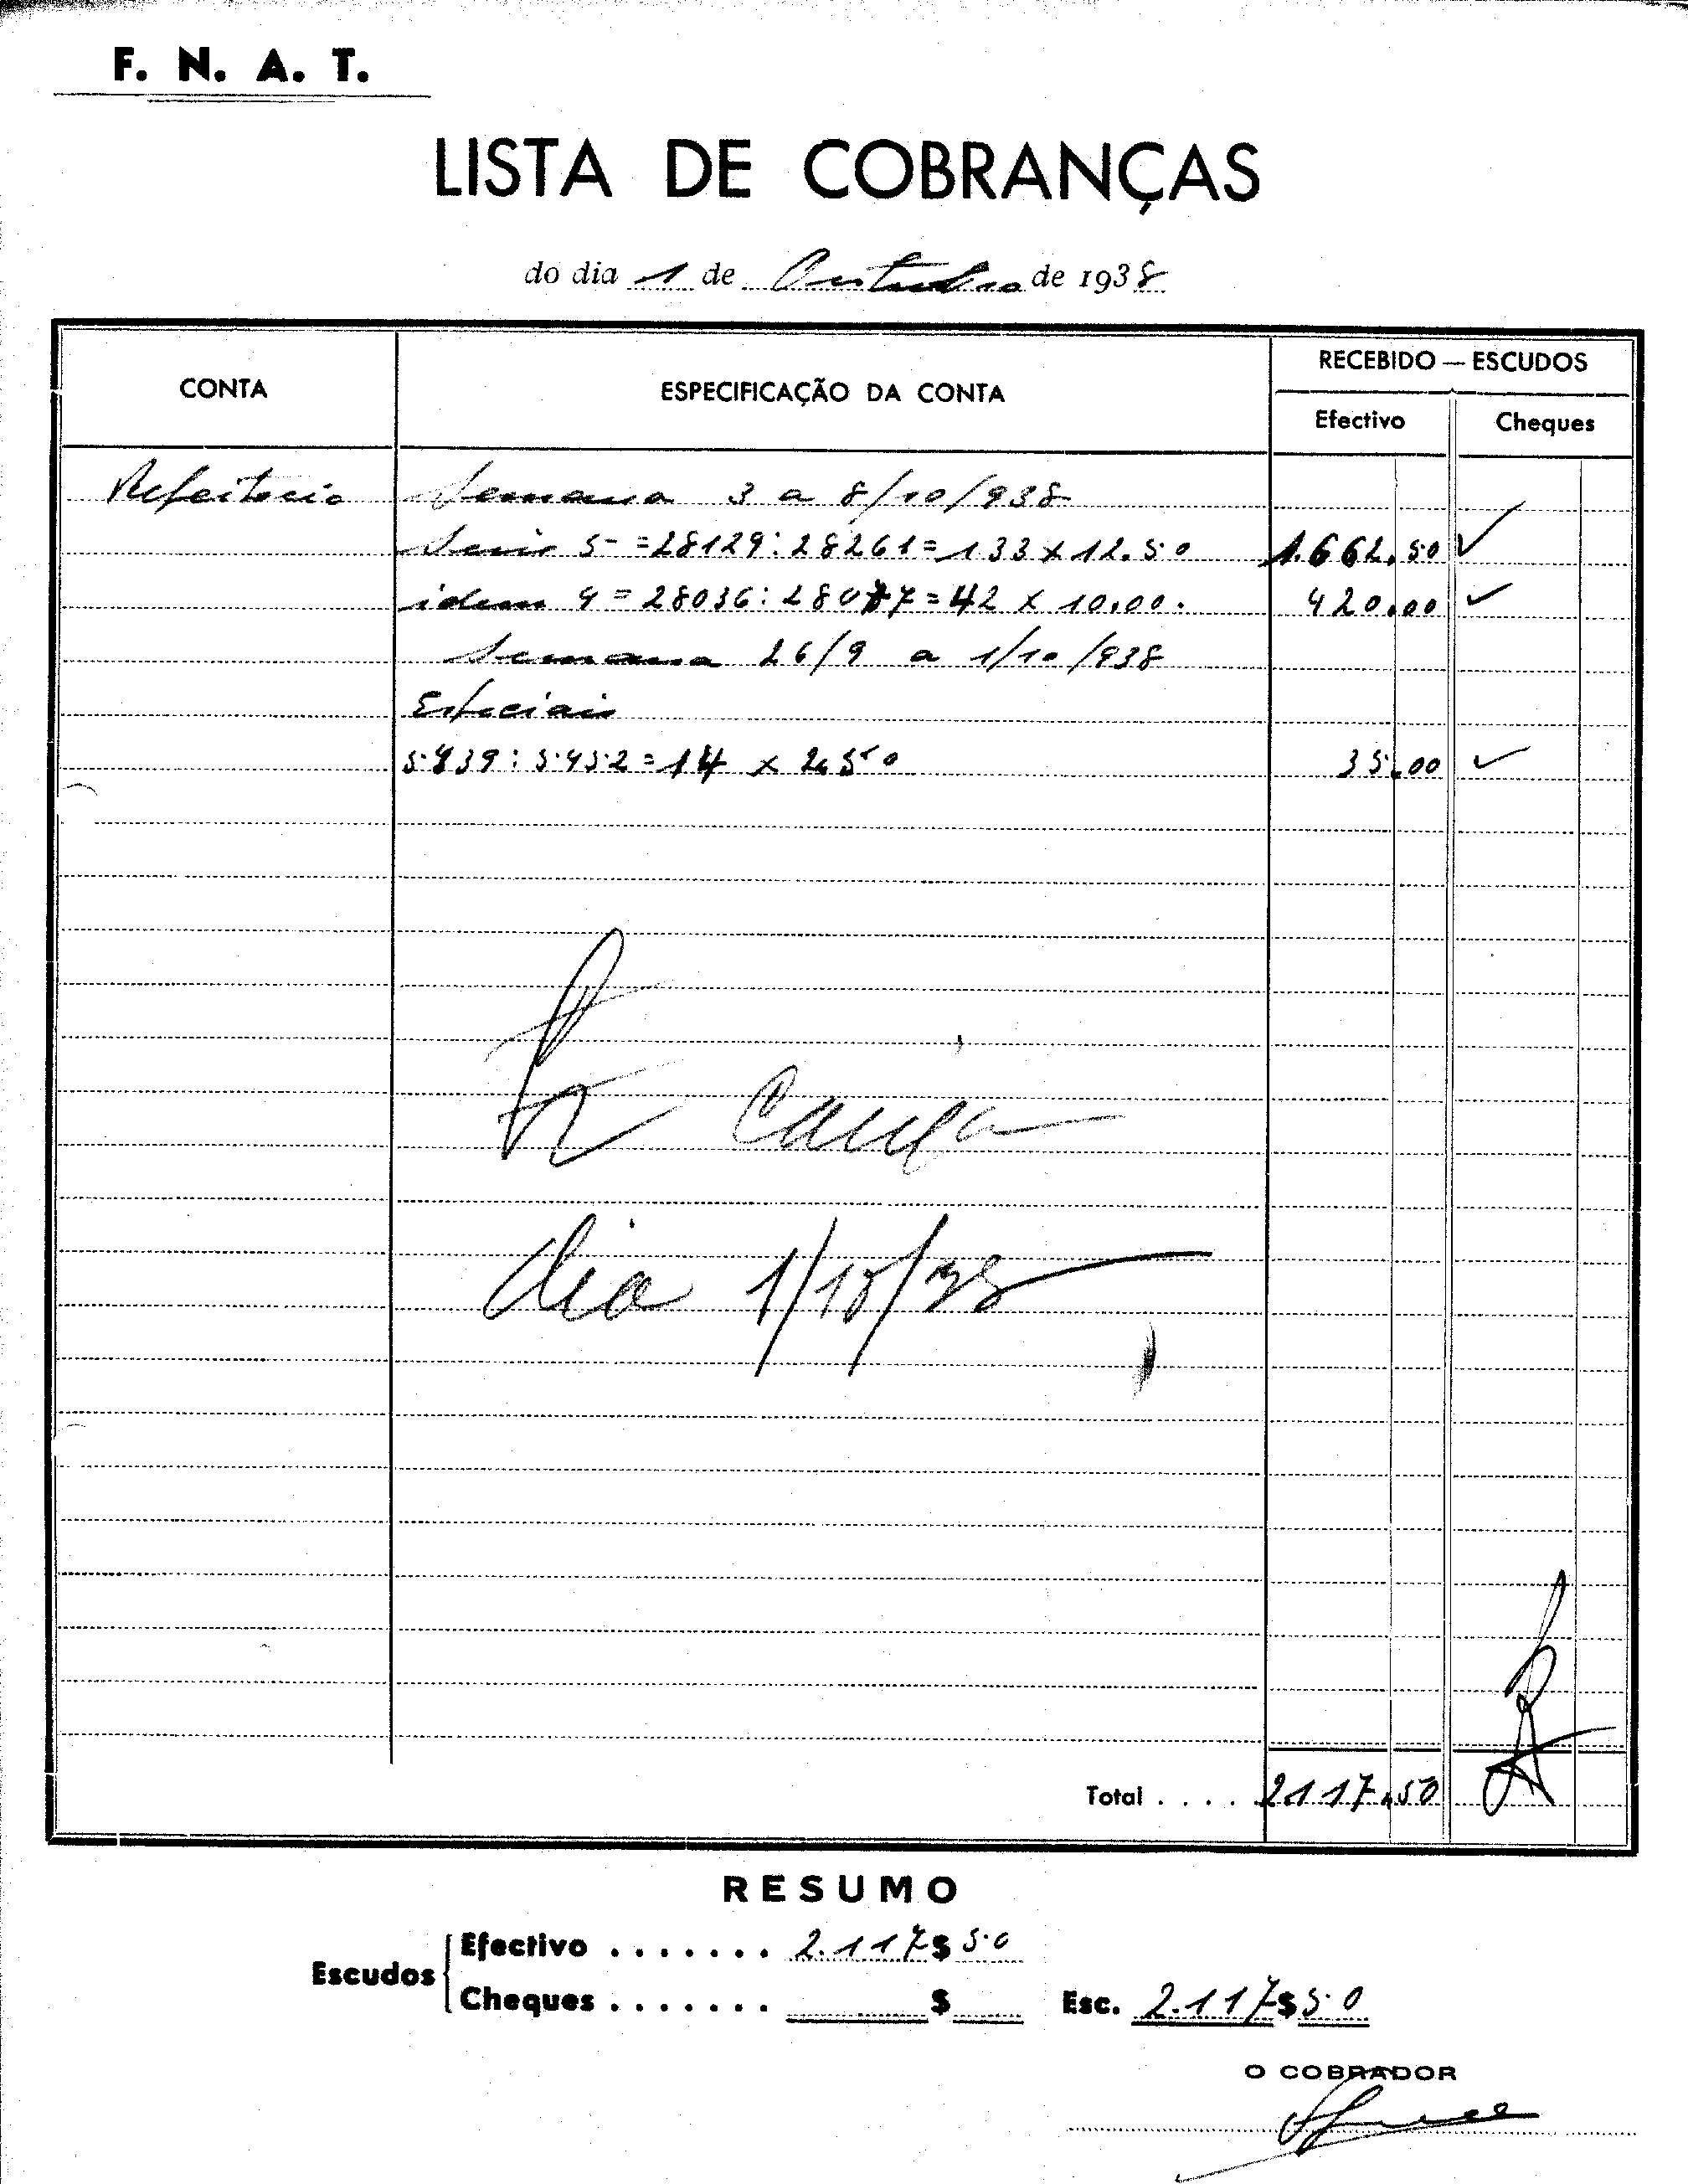 F. N. A. T.
LISTA DE COBRANÇAS
do dia 1 de Outubro de 1938
CONTA
ESPECIFICAÇÃO DA CONTA
RECEBIDO — ESCUDOS
Efectivo
Cheques
Refeitorio Semana 3 a 8/10/938
Serie 5 = 28129 : 28261 = 133 x 12.50 1.662,50
idem 4 = 28036 : 28077 = 42 x 10,00. 420,00
Semana 26/9 a 1/10/938
Especiais
5.939 : 5.952 = 14 x 2,50 35,00
Caixa
dia 1/10/38
Total .... 2117,50
RESUMO
Escudos
Efectivo ....... 2.117$50
Cheques ....... $
Esc. 2.117$50
O COBRADOR